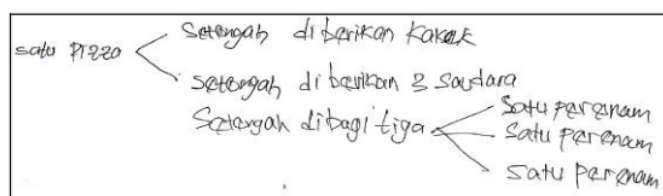 Setengah diberikan Kakak
satu pizza
setengah diberikan 3 saudara
Setengah dibagi tiga
Satu perenam
Satu perenam
satu perenam